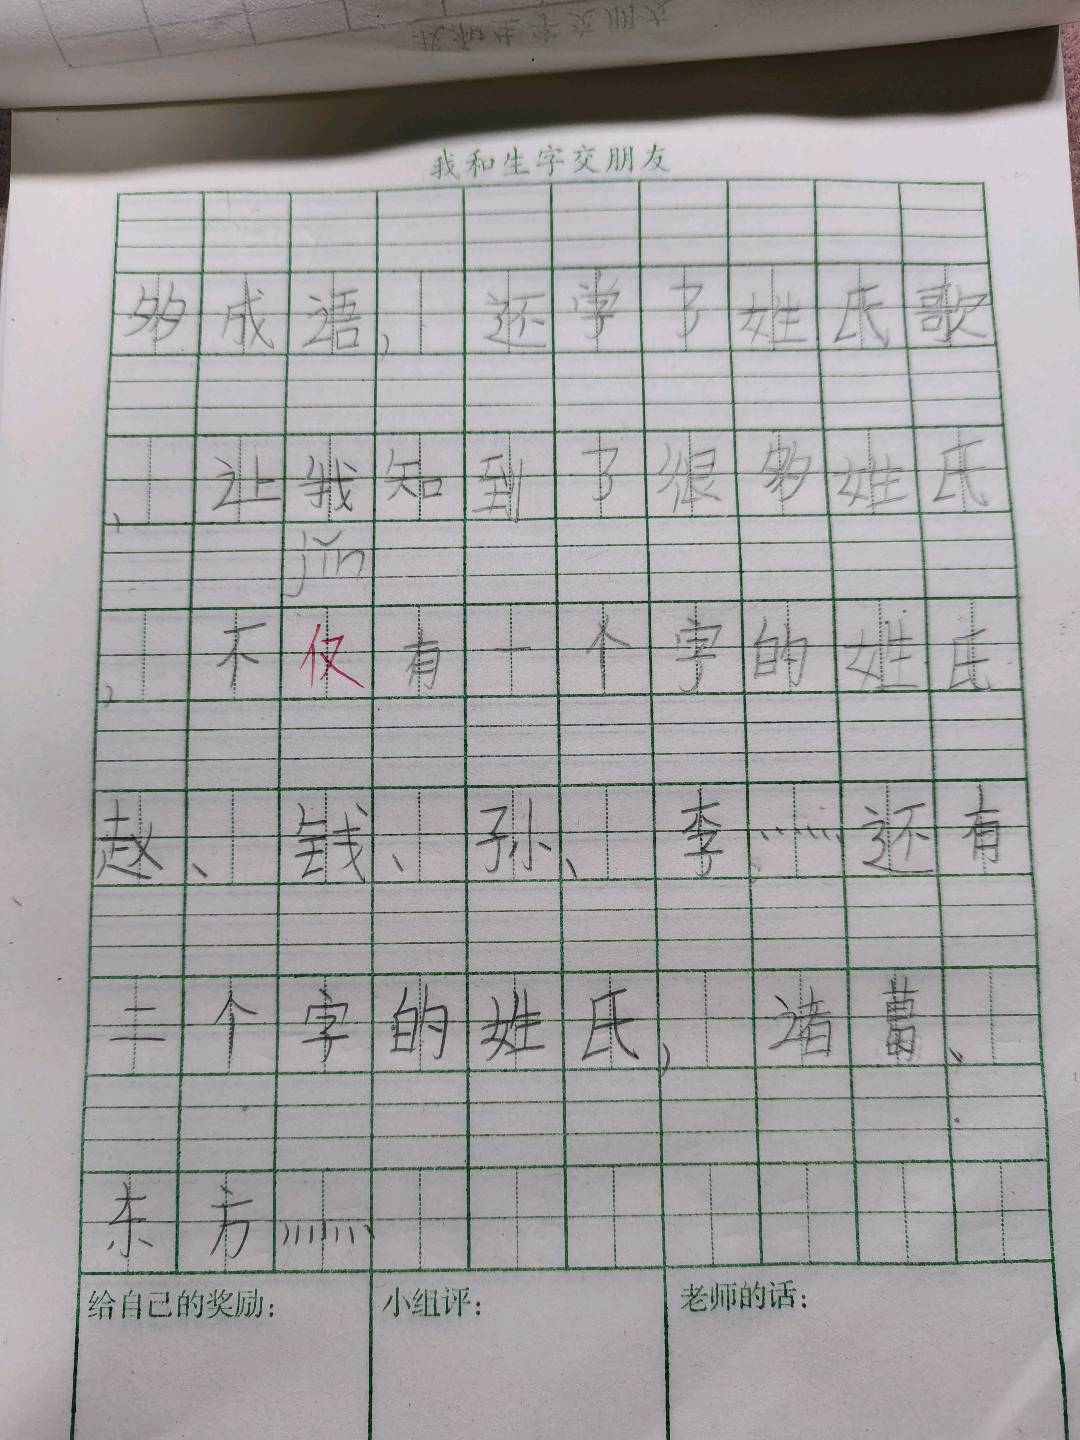 我和生字交朋友
多成语，还学了姓氏歌
，让我知到了很多姓氏
jǐn
，不仅有一个字的姓氏
赵、钱、孙、李……还有
二个字的姓氏，诸葛、
东方……
给自己的奖励：
小组评：
老师的话：